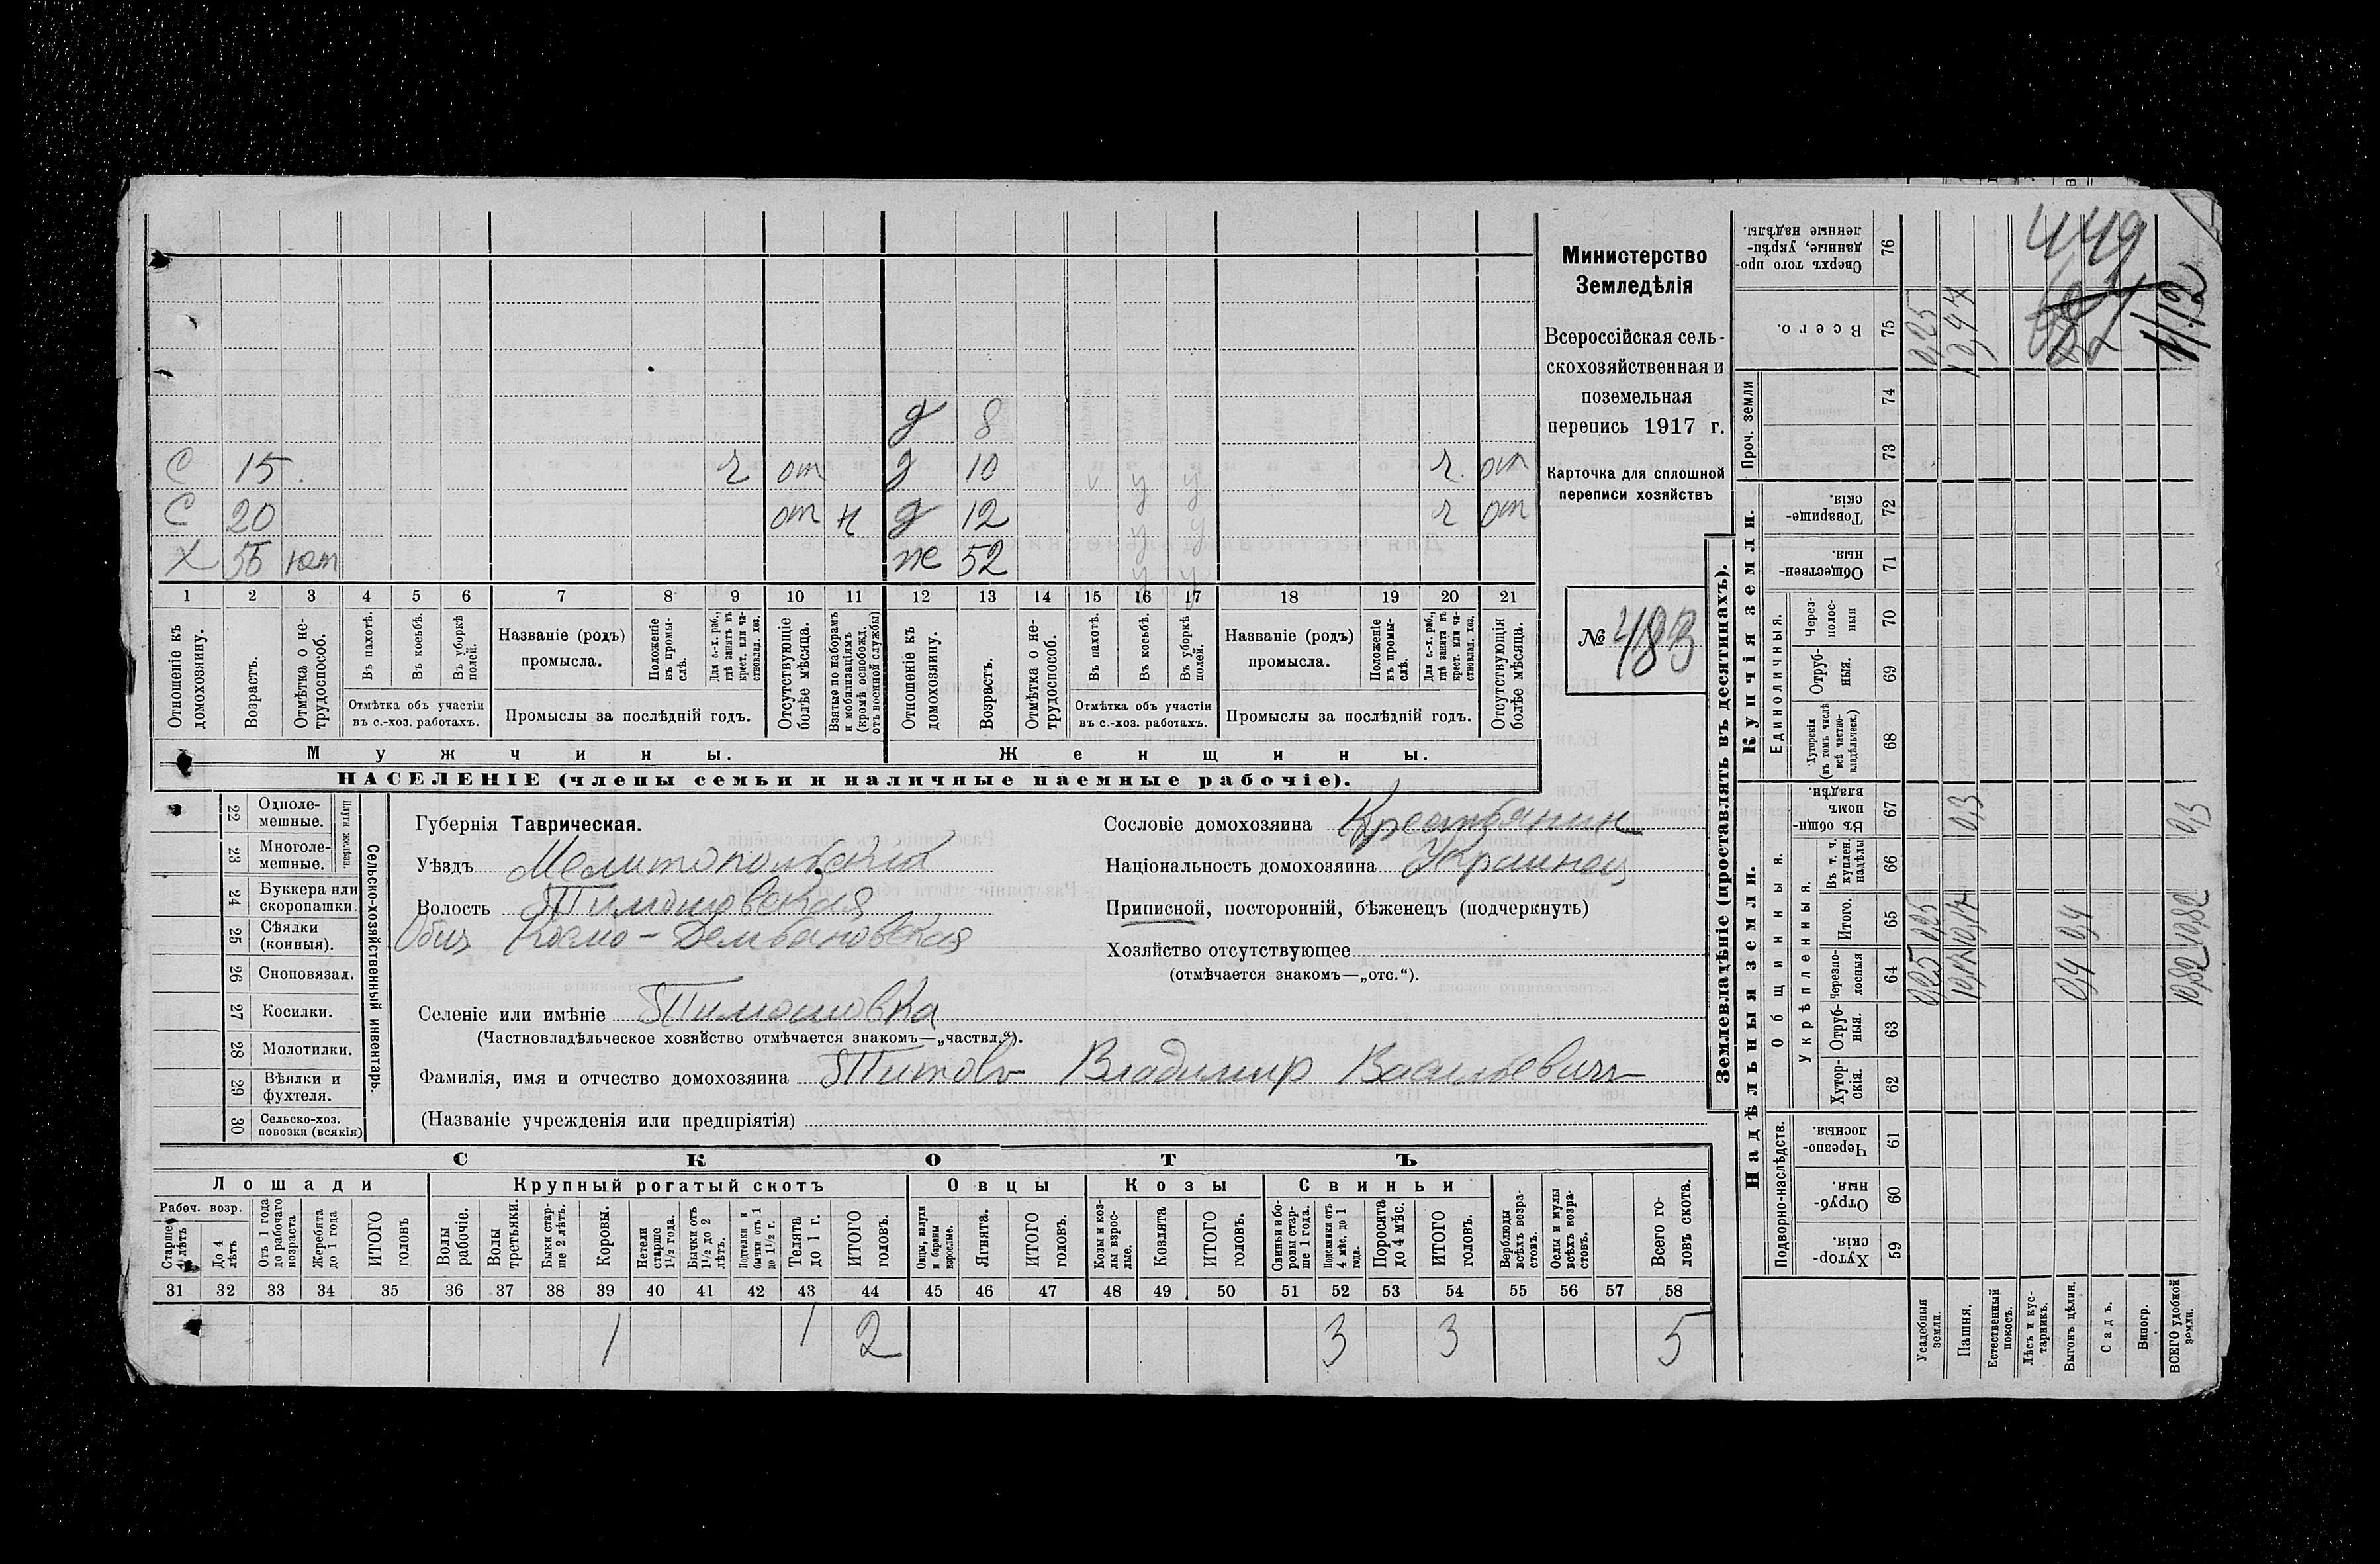 Министерство
Земледѣлія
Всероссійская сель-
скохозяйственная и
поземельная
перепись 1917 г.
Карточка для сплошной
переписи хозяйствъ
№ 483
д 8
С 15. г от д 10 г. от
С 20 от н д 12 г от
Х 55 ют же 52
1 2 3 4 5 6 7 8 9 10 11 12 13 14 15 16 17 18 19 20 21
Отношеніе къ домохозяину.
Возрастъ.
Отмѣтка о не-трудоспособ.
Въ пахотѣ.
Въ косьбѣ.
Въ уборкѣ полей.
Отмѣтка объ участіи
въ с.-хоз. работахъ.
Названіе (родъ)
промысла.
Положеніе въ промы-слѣ.
Для с.-х. раб., гдѣ занятъ въ крест. или ча-стновлад. хоз.
Промыслы за послѣдній годъ.
Отсутствующіе болѣе мѣсяца.
Взятые по наборамъ и мобилизаціямъ (кромѣ освобожд. отъ военной службы)
Отношеніе къ домохозяину.
Возрастъ.
Отмѣтка о не-трудоспособ.
Въ пахотѣ.
Въ косьбѣ.
Въ уборкѣ полей.
Отмѣтка объ участіи
въ с.-хоз. работахъ.
Названіе (родъ)
промысла.
Положеніе въ промы-слѣ.
Для с.-х. раб., гдѣ занята въ крест. или ча-стновлад. хоз.
Промыслы за послѣдній годъ.
Отсутствующія болѣе мѣсяца.
Мужчины. Женщины.
НАСЕЛЕНІЕ (члены семьи и наличные наемные рабочіе).
Сельско-хозяйственный инвентарь.
22 Одноле-мешные.
23 Многоле-мешные.
24 Буккера или скоропашки.
25 Сѣялки (конныя).
26 Сноповязал.
27 Косилки.
28 Молотилки.
29 Вѣялки и фухтеля.
30 Сельско-хоз. повозки (всякія)
Губернія Таврическая.
Уѣздъ Мелитопольский
Волость Тимошовская
Общ Космо-Демьановская
Селеніе или имѣніе Тимошовка
(Частновладѣльческое хозяйство отмѣчается знакомъ—„частвл.“).
Фамилія, имя и отчество домохозяина Титовъ Владимир Васильевичъ
(Названіе учрежденія или предпріятія)
Сословіе домохозяина Крестьянин
Національность домохозяина Украинец
Приписной, посторонній, бѣженецъ (подчеркнуть)
Хозяйство отсутствующее
(отмѣчается знакомъ—„отс.“).
СКОТЪ
Лошади Крупный рогатый скотъ Овцы Козы Свиньи
Рабоч. возр.
Старше 4 лѣтъ
До 4 лѣтъ
Отъ 1 года до рабочаго возраста
Жеребята до 1 года
ИТОГО головъ
Волы рабочіе.
Волы третьяки.
Быки стар-ше 2 лѣтъ.
Коровы.
Нетели старше 1½ года.
Бычки отъ 1½ до 2 лѣтъ.
Подтелки и бычки отъ 1 до 1½ г.
Телята до 1 г.
ИТОГО головъ.
Овцы, валухи и бараны взрослые.
Ягнята.
ИТОГО головъ.
Козы и коз-лы взрос-лые.
Козлята
ИТОГО головъ.
Свиньи и бо-ровы стар-ше 1 года.
Подсвинки отъ 4 мѣс. до 1 года.
Поросята до 4 мѣс.
ИТОГО головъ.
Верблюды всѣхъ возра-стовъ.
Ослы и мулы всѣхъ возра-стовъ.
Всего го-ловъ скота.
31 32 33 34 35 36 37 38 39 40 41 42 43 44 45 46 47 48 49 50 51 52 53 54 55 56 57 58
1 1 2 3 3 5
Землевладѣніе (проставлять въ десятинахъ).
Надѣльныя земли. Купчія земли. Проч. земли
Подворно-наслѣдств.
Общинныя.
Укрѣпленныя.
Единоличныя.
Хутор-скія. 59
Отруб-ныя. 60
Черезпо-лосныя. 61
Хутор-скія. 62
Отруб-ныя. 63
Черезпо-лосныя 64
Итого. 65
Въ т. ч. куплен. надѣлы 66
Въ общин-номъ владѣн. 67
Хуторскія (въ томъ числѣ всѣ частно-владѣльческ.) 68
Отруб-ныя. 69
Через-полос-ныя 70
Обществен-ныя. 71
Товарище-скія. 72
73
74
Всего. 75
Сверхъ того про-данные, укрѣп-ленные надѣлы. 76
Усадебныя земли. 0,25 0,25 0,25
Пашня. 0,3 10,47
Естественный покосъ.
Лѣсъ и кус-тарникъ.
Выгонъ цѣлин. 0,4 0,4
Садъ.
Виногр.
ВСЕГО удобной земли. 10,82 10,82 0,3 11,12
449